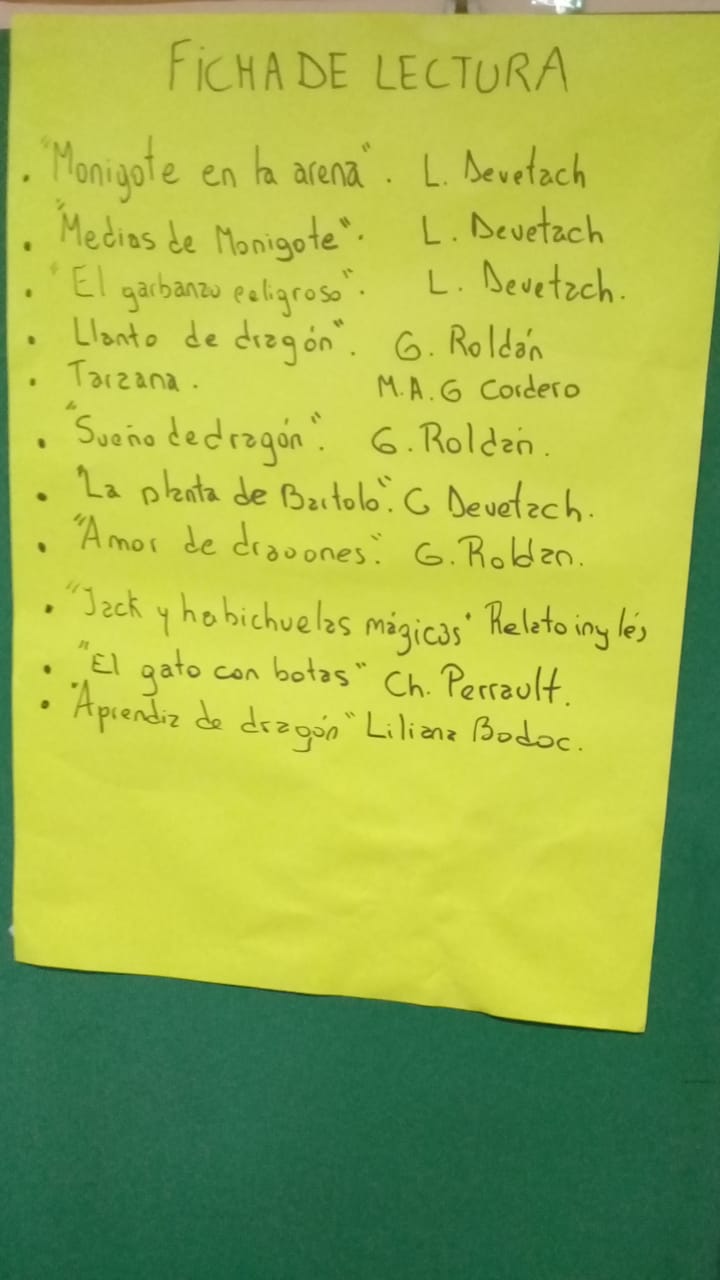 FICHA DE LECTURA
• "Monigote en la arena". L. Devetach
• "Medias de Monigote". L. Devetach
• "El garbanzo peligroso". L. Devetach.
• Llanto de dragón". G. Roldán
• Tarzana. M.A.G Cordero
• "Sueño de dragón". G. Roldán.
• "La planta de Bartolo". C Devetach.
• "Amor de dragones". G. Roldan.
• "Jack y habichuelas mágicas" Relato inglés
• "El gato con botas" Ch. Perrault.
• "Aprendiz de dragón" Liliana Bodoc.